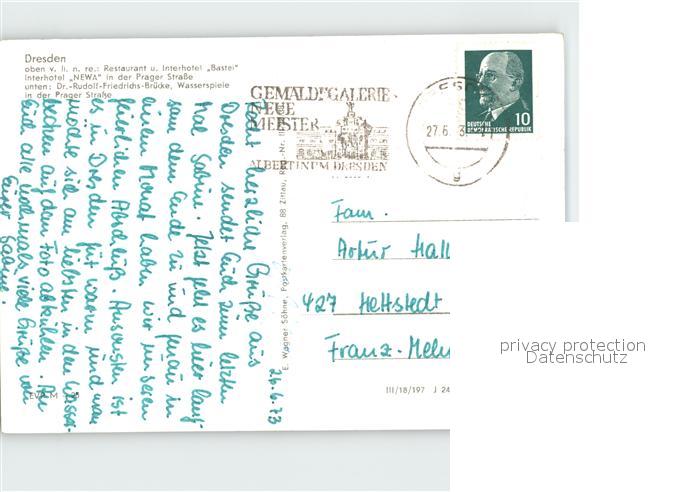 Dresden
oben v. li. n. re.: Restaurant u. Interhotel „Bastei"
Interhotel „NEWA" in der Prager Straße
unten: Dr.-Rudolf-Friedrichs-Brücke, Wasserspiele
in der Prager Straße
GEMÄLDEGALERIE
NEUE
MEISTER
ALBERTINUM DRESDEN
27.6.
10
DEUTSCHE
DEMOKRATISCHE REPUBLIK
26.6.73
herzliche Grüße aus
Dresden sendet Euch zum letzten
Mal Sabine. Jetzt geht es hier lang-
sam dem Ende zu und genau in
einem Monat haben wir unseren
feierlichen Abschluß. Ansonsten ist
es in Dresden sehr warm und man
möchte sich am liebsten in den Wasser-
auf dem Foto abkühlen.
Euch alle nochmals viele Grüße von
Eurer Sabine.
E. Wagner Söhne, Postkartenverlag, 88 Zittau,
Fam.
Artur Hall
427 Hettstedt
Franz-Meh
III/18/197 J 24
EVP M
privacy protection
Datenschutz